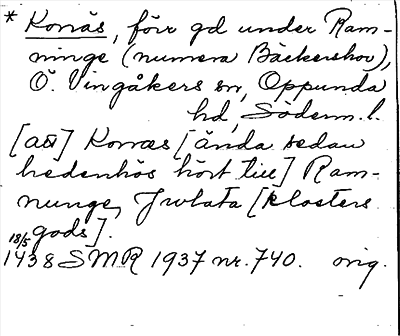 * Korrås, förr gd under Ram-
ninge (numera Bäckershov),
Ö. Vingåkers sn, Oppunda
hd, Söderm. l.
[att] Korræs [ända sedan
hedenhös hört till] Ram-
nunge, Julata [klosters
gods].
18/5
1438 SMR 1937 nr. 740. orig.